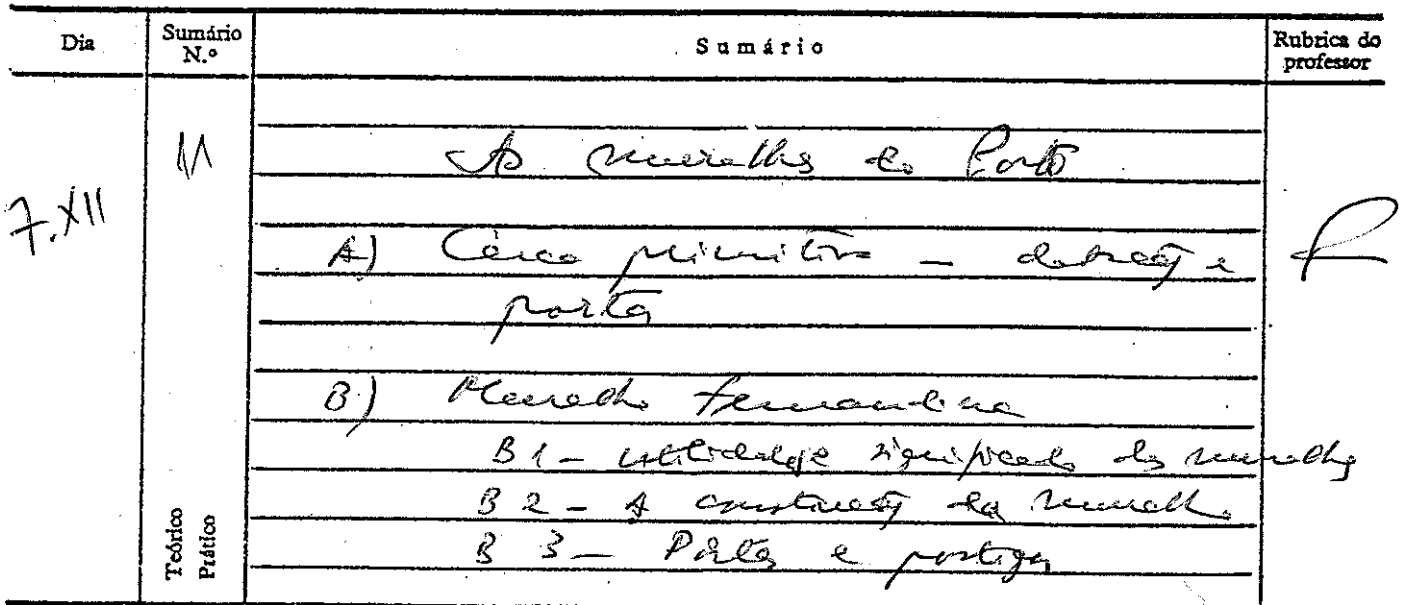 Dia Sumário N.º Sumário Rubrica do professor
7.XII 11 As muralhas do Porto
A) Cerca primitiva – datação e
portas
B) Muralha fernandina
B1 – utilidade e significado das muralhas
B2 – A construção da muralha
B3 – Portas e postigos
Teórico
Prático